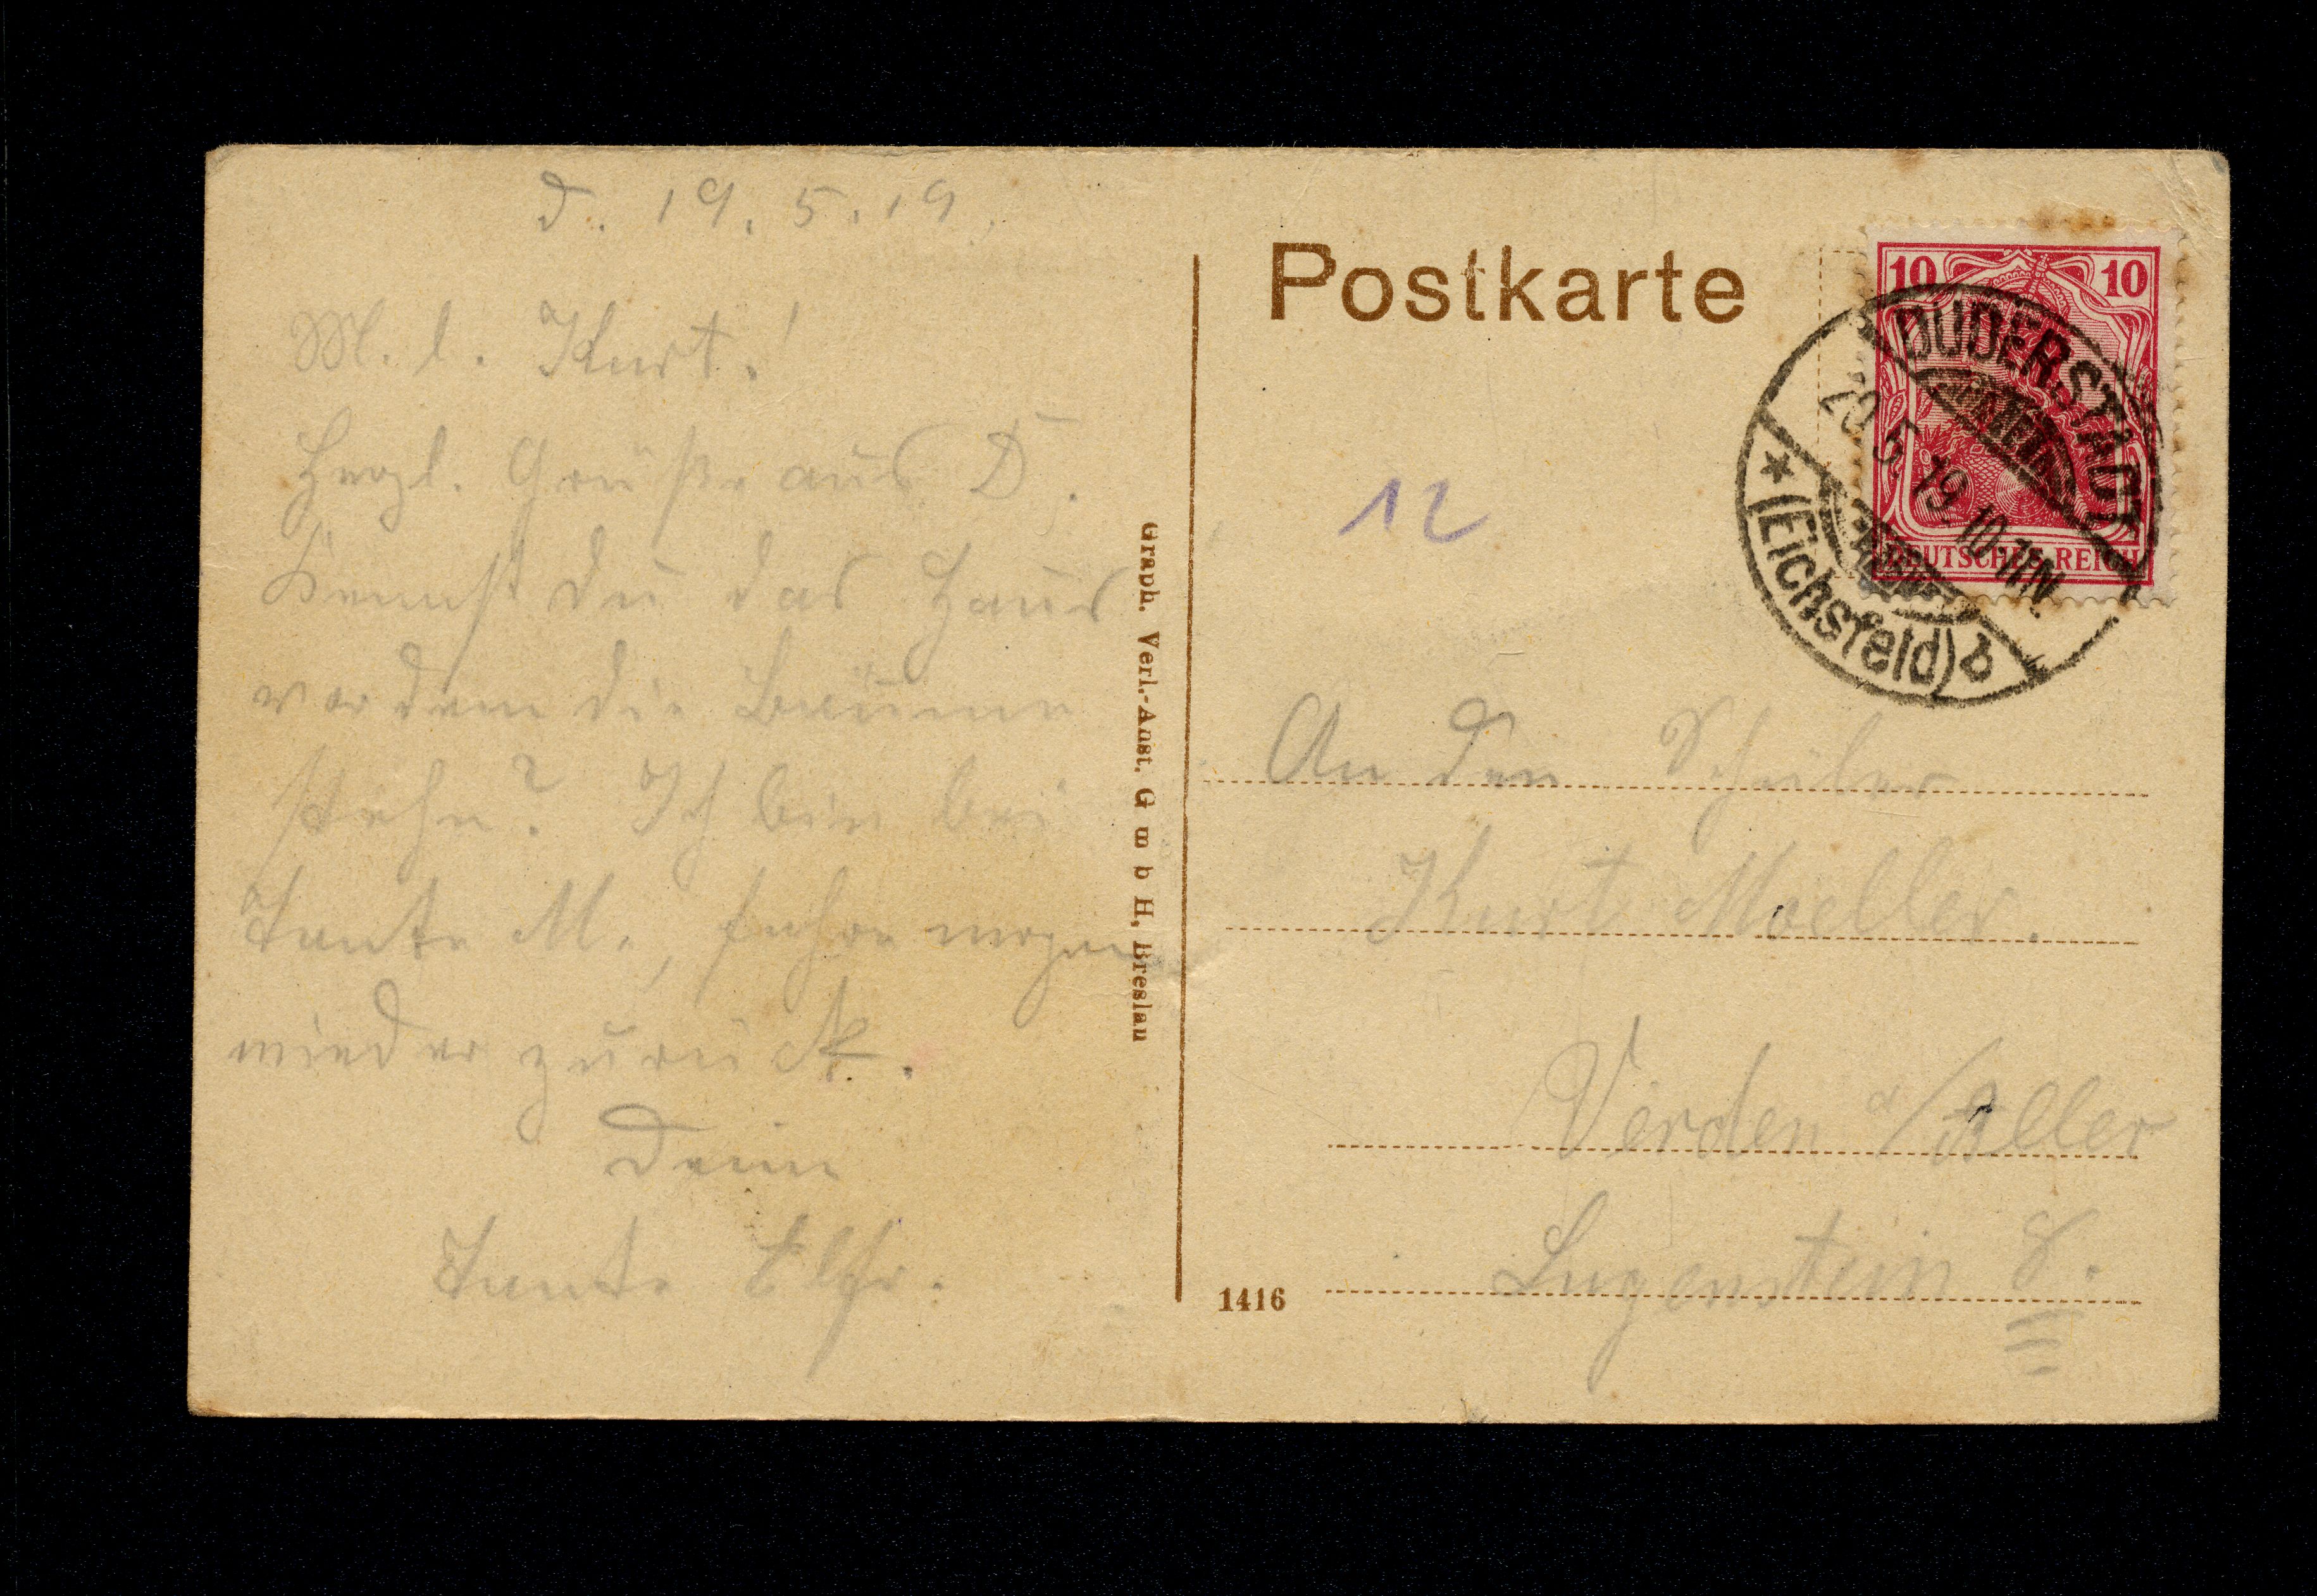 d. 19.5.19.
M. l. Kurt!
Herzl. Grüße aus D.
Kennst du das Haus
vor dem die Bäume
stehn? Ich bin bei
Tante M., fahre morgen
wieder zurück.
Deine
Tante Elfr.
Graph. Verl.-Anst. G m b H, Breslau
Postkarte
10 10
DEUTSCHES REICH
DUDERSTADT
5. 19. 10-11 N.
* (Eichsfeld) b
12
An den Schüler
Kurt Moeller.
Verden a/Aller
Lugenstein 8.
1416